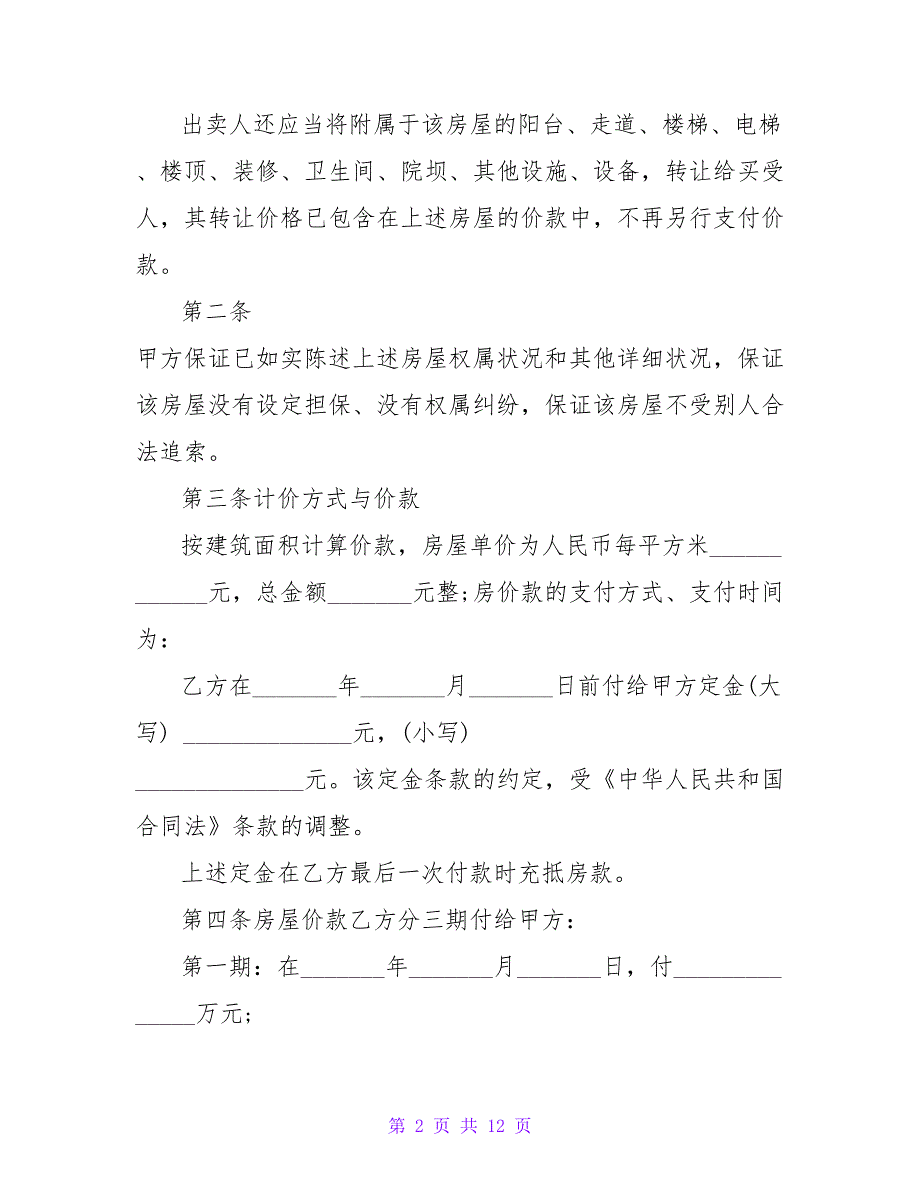 出卖人还应当将附属于该房屋的阳台、走道、楼梯、电梯
、楼顶、装修、卫生间、院坝、其他设施、设备，转让给买受
人，其转让价格已包含在上述房屋的价款中，不再另行支付价
款。
第二条
甲方保证已如实陈述上述房屋权属状况和其他详细状况，保证
该房屋没有设定担保、没有权属纠纷，保证该房屋不受别人合
法追索。
第三条计价方式与价款
按建筑面积计算价款，房屋单价为人民币每平方米______
______元，总金额_______元整;房价款的支付方式、支付时间
为：
乙方在_______年_______月_______日前付给甲方定金(大
写) ______________元，(小写)
______________元。该定金条款的约定，受《中华人民共和国
合同法》条款的调整。
上述定金在乙方最后一次付款时充抵房款。
第四条房屋价款乙方分三期付给甲方：
第一期：在_______年_______月_______日，付_________
_____万元;
第 2 页 共 12 页